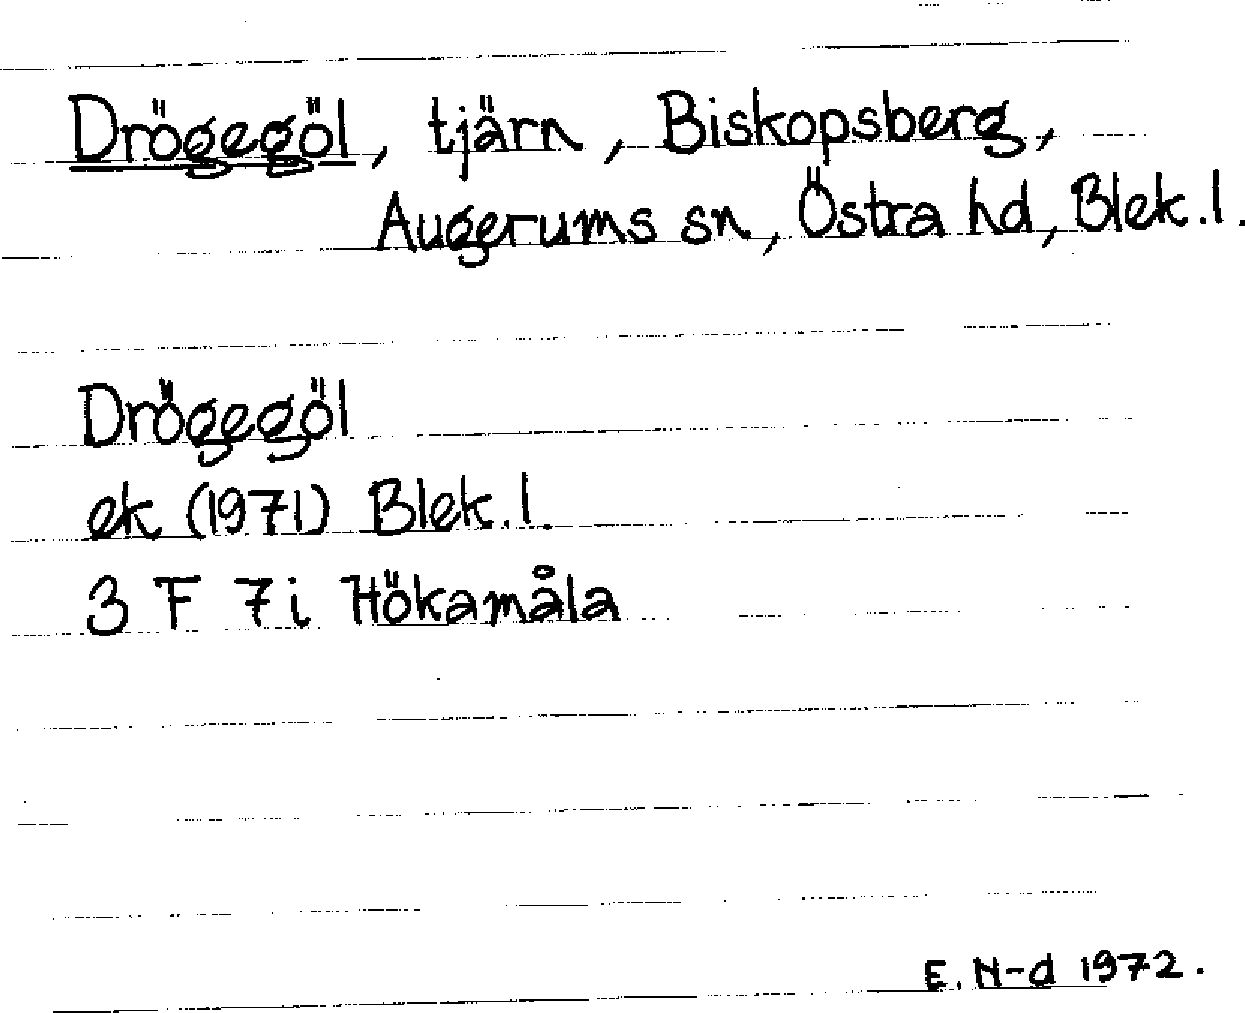 Drögegöl, tjärn, Biskopsberg,
Augerums sn, Östra hd, Blek.l.
Drögegöl
ek (1971) Blek.l.
3 F 7i Hökamåla
E. N-d 1972.